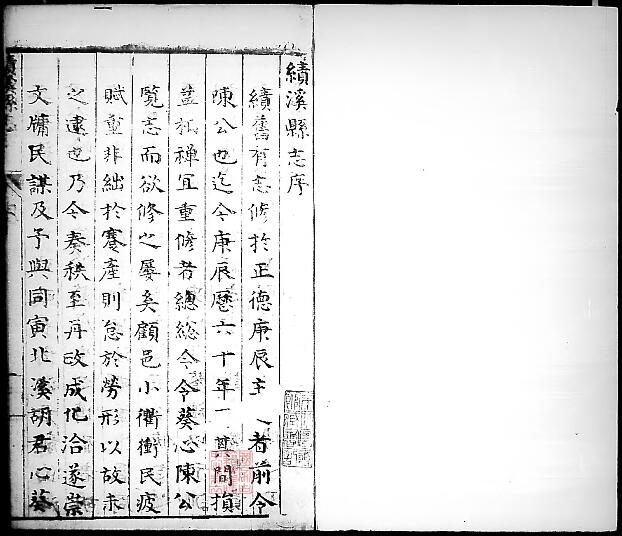 績溪縣志序
績舊有志修於正德庚辰主 者前令
陳公也迄今庚辰曆六十年 其間損
益杌禪宜重修者總總今令葵心陳公
覧志而欲修之屡矣顧邑小衢衝民疲
賦重非絀於蹇產則怠於勞形以故未
之逮也乃今奏秩至再政成化洽遂崇
文牖民謀及予與同寅北溪胡君心葵